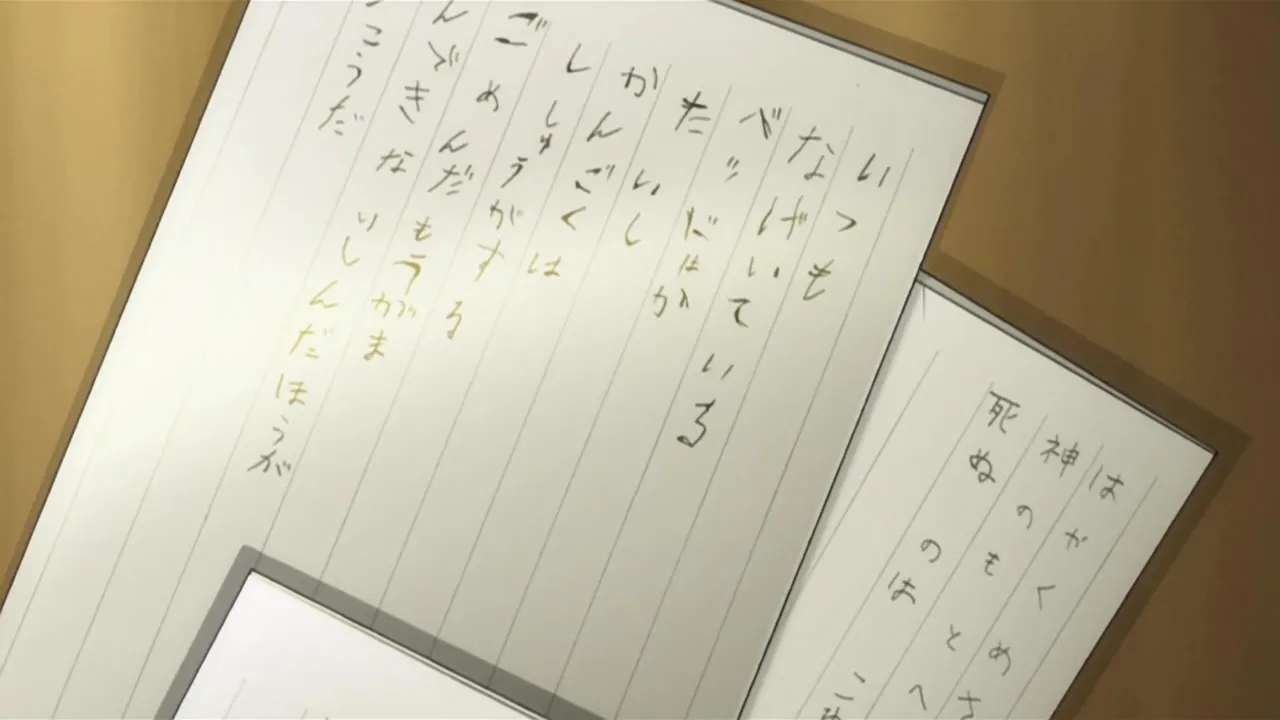 いつも
なげいている
べッだはか
たいし
かんごくは
ししゅうがする
ごめんだもうがま
んできないしんだほうが
こうだ
はやくめさ
神のもとへ
死ぬのは